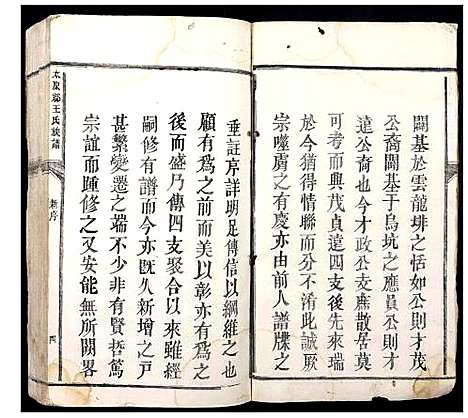 闢基於雲龍埤之恬如公則才茂
公裔闢基于烏坑之應員公則才
達公裔也今才政公支蕪散居莫
考而興茂貞達四支後先來瑞
於今猶得情聯而分不淆此誠厥
宗噬膚之有慶亦由前人譜牒之
垂註序詳明足傳信以綱維之也
顧有為之前而美以彰亦有為之
後而盛乃傳四支聚合以來雖經
嗣修有譜而今亦既久新增之戶
甚繁變遷之端不少非有賢哲篤
宗誼而踵修之又安能無所闕畧
太原郡王氏族譜
新序
四